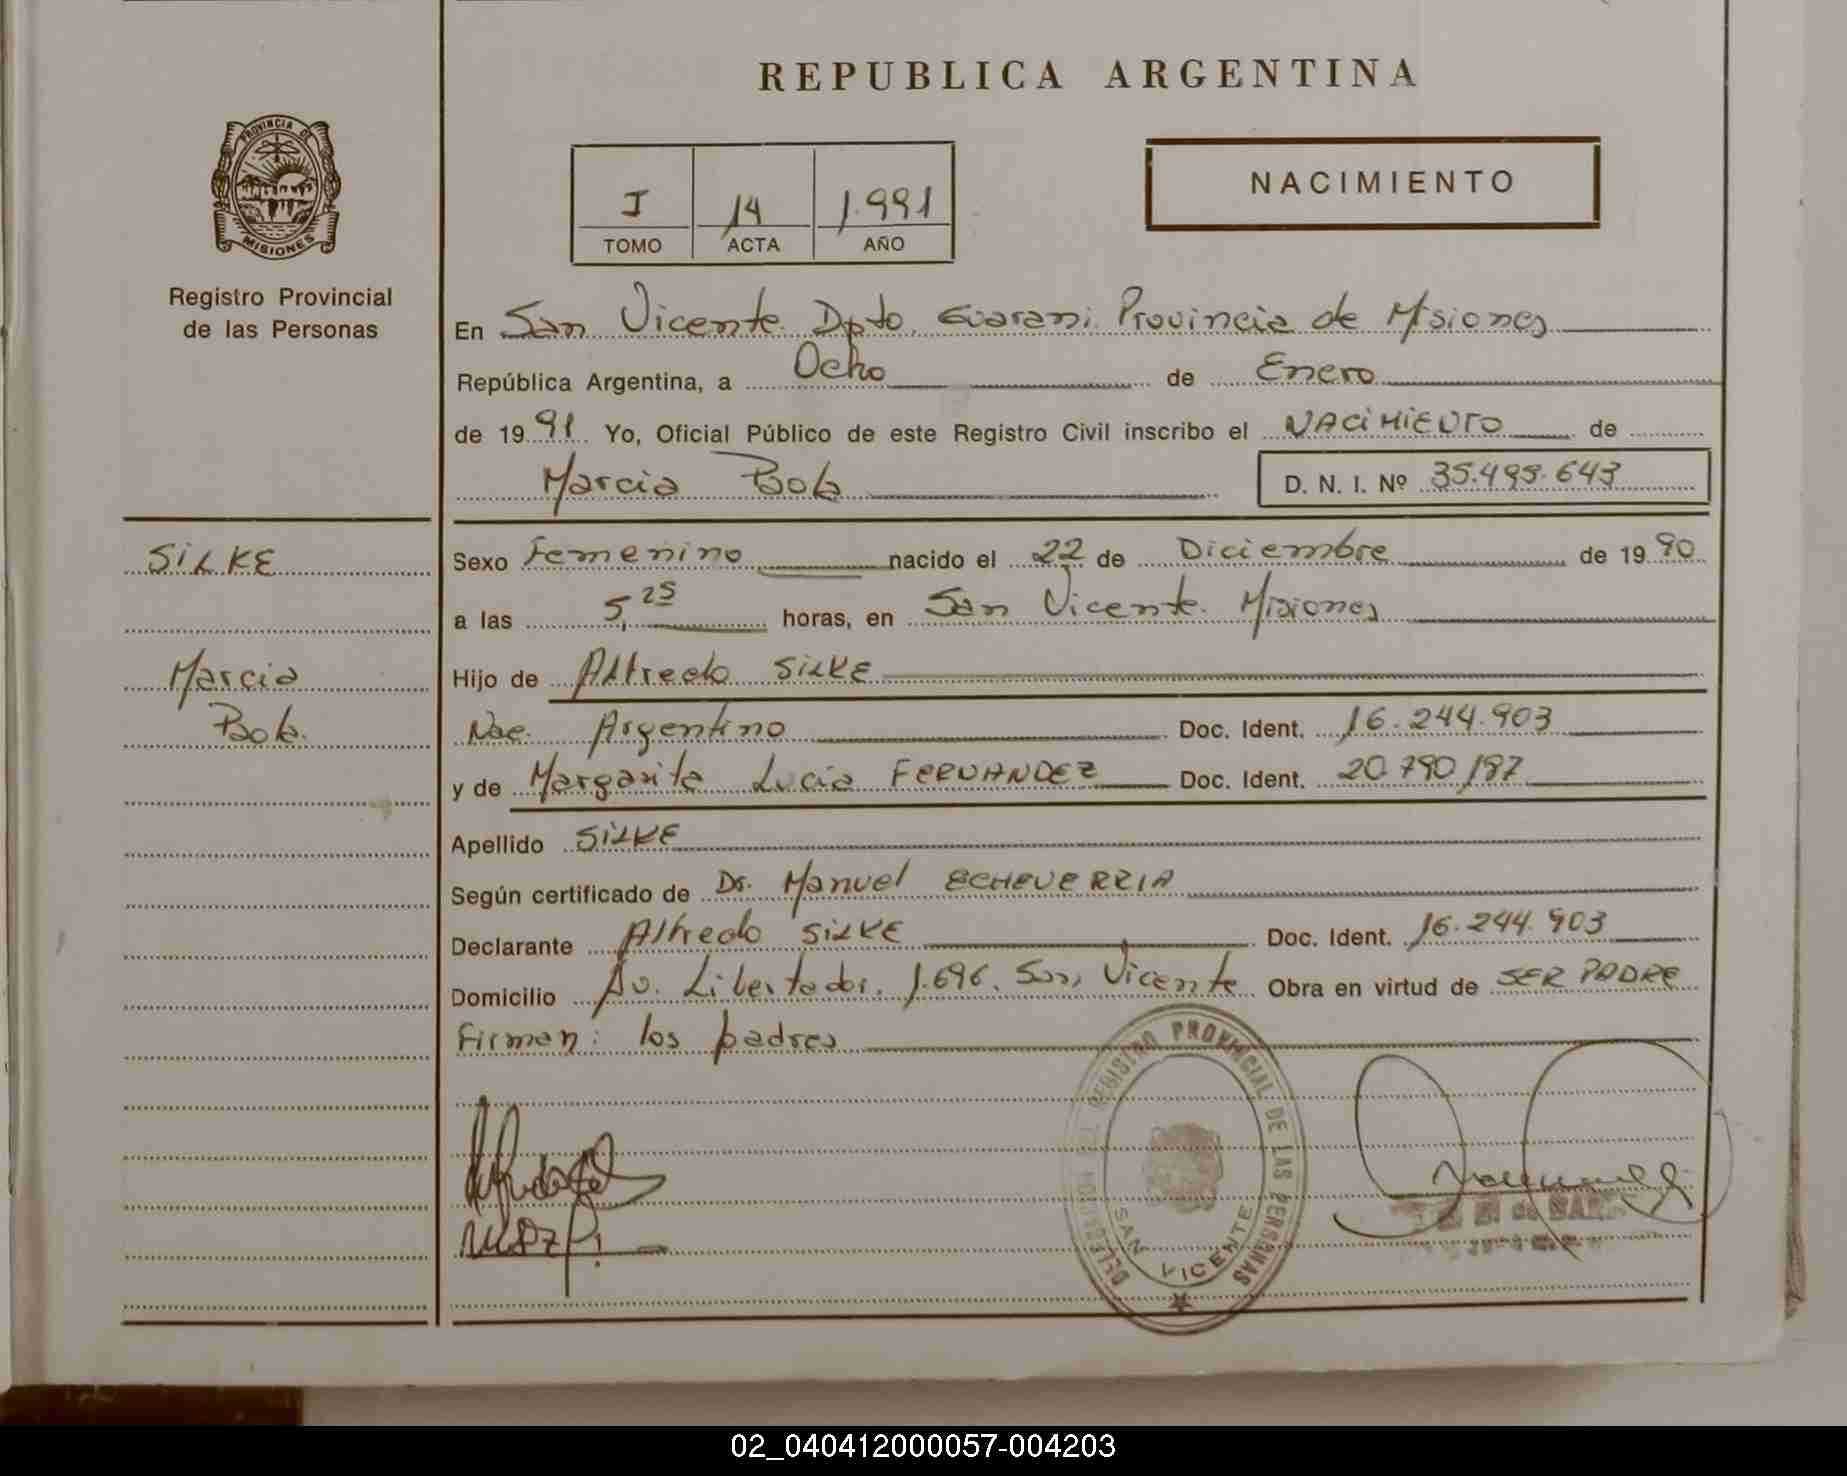 REPUBLICA ARGENTINA
PROVINCIA DE
MISIONES
Registro Provincial
de las Personas
I 14 1.991
TOMO ACTA AÑO
NACIMIENTO
En San Vicente. Dpto. Guarani. Provincia de Misiones
República Argentina, a Ocho de Enero
de 1991 Yo, Oficial Público de este Registro Civil inscribo el NACIMIENTO de
Marcia Paola D. N. I. Nº 35.495.643
SILKE
Marcia
Paola.
Sexo Femenino nacido el 22 de Diciembre de 1990
a las 5,25 horas, en San Vicente. Misiones
Hijo de Alfredo SILKE
Nac. Argentino Doc. Ident. 16.244.903
y de Margarita Lucia FERNANDEZ Doc. Ident. 20.790.187
Apellido SILKE
Según certificado de Dr. Manuel ECHEVERRIA
Declarante Alfredo SILKE Doc. Ident. 16.244.903
Domicilio Av. Libertador. 1.696. San Vicente Obra en virtud de SER PADRE
Firman: los padres
REGISTRO PROVINCIAL DE LAS PERSONAS
SAN VICENTE
02_040412000057-004203